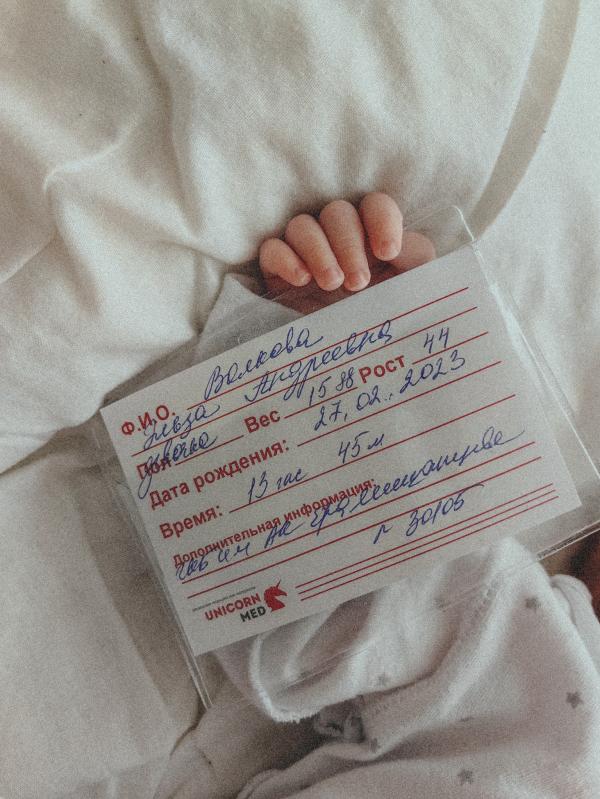 Ф.И.О. Волкова
Эльза Андреевна
Пол: девочка Вес 1588 Рост 44
Дата рождения: 27.02.2023
Время: 13 час 45 м
Дополнительная информация:
г 30105
UNICORN
MED